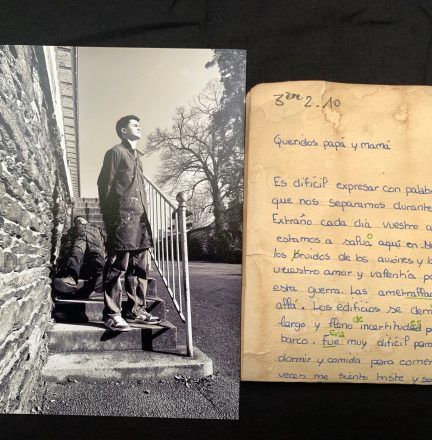 3ème 2.10
Queridos papá y mamá
Es difícil expresar con palabra
que nos separamos durante
Extraño cada día vuestro a
estamos a salvo aquí en
los ruidos de los aviones y l
vuestro amor y valentía p
esta guerra. Las ametralla
allá. Los edificios se de
largo y lleno de incertitud
barco. Fue era muy difícil para
dormir y comida para comer
veces me siento triste y so